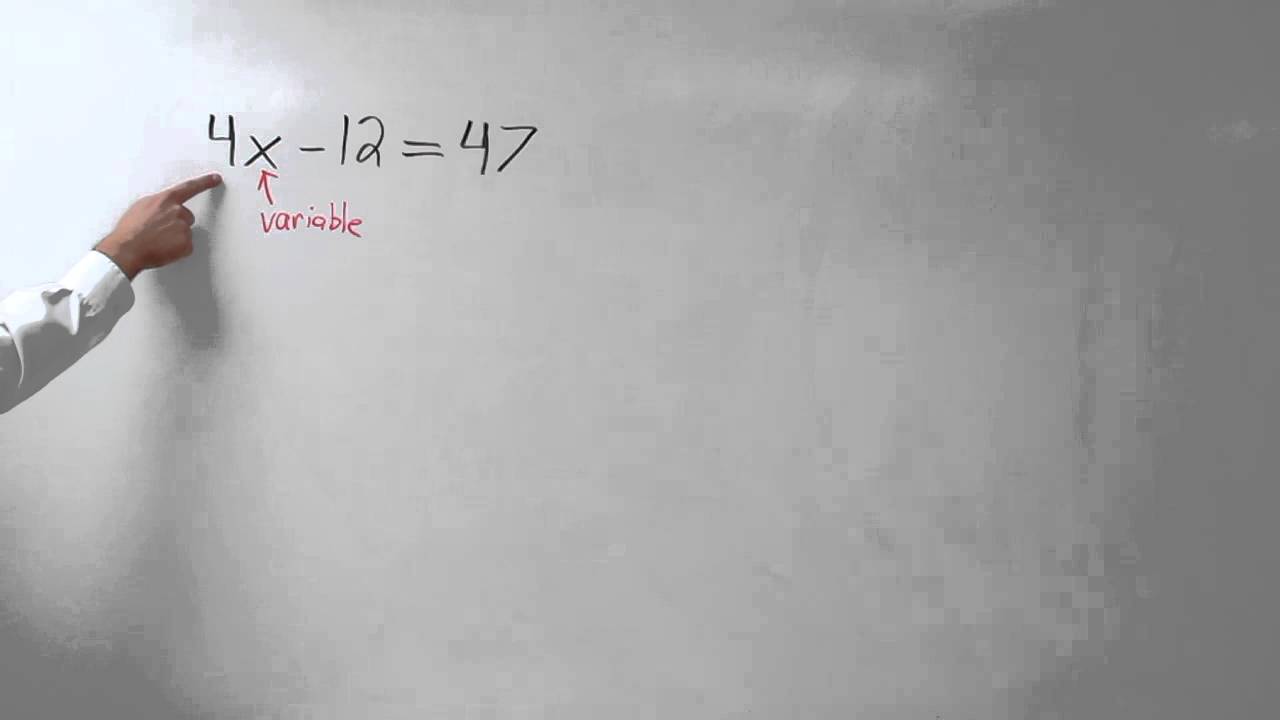 4x - 12 = 47
variable